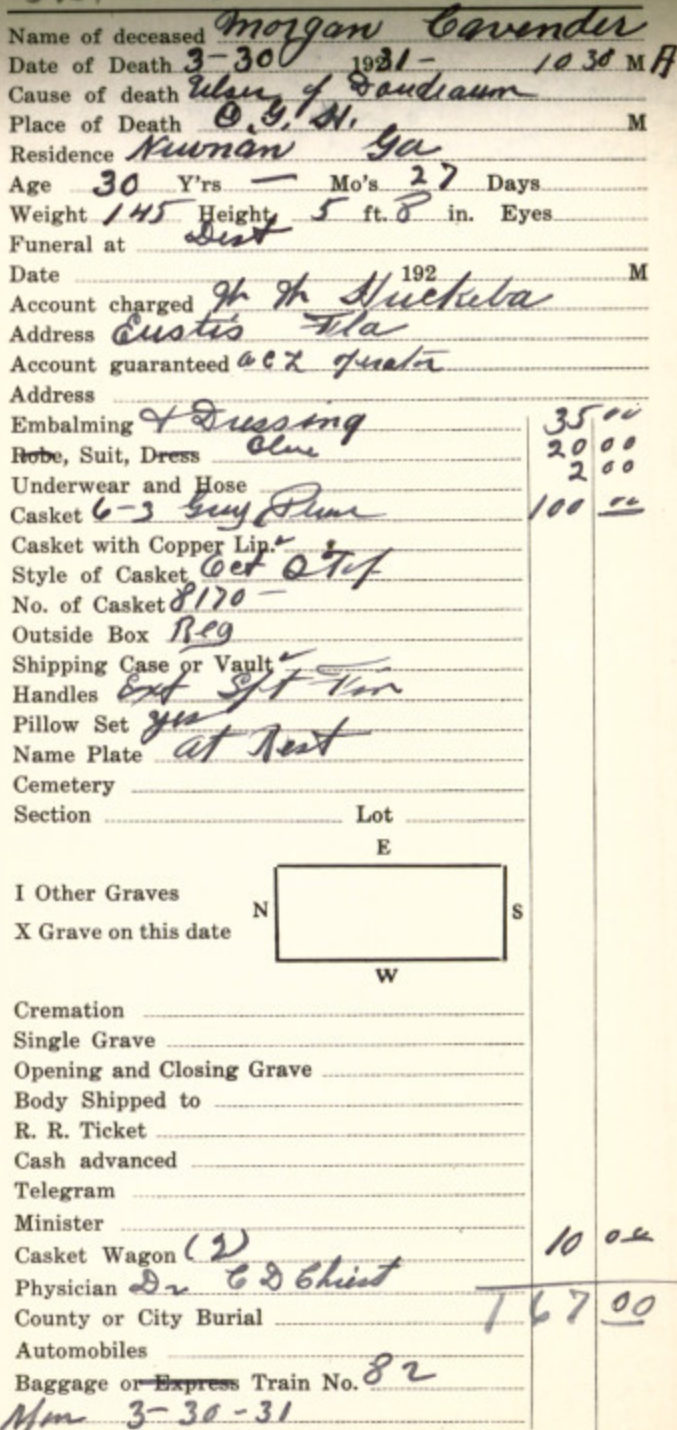 Name of deceased Morgan Cavender
Date of Death 3-30 1931- 10 30 M A
Cause of death Ulser of Doudeaum
Place of Death O. G. H. M
Residence Newnan Ga
Age 30 Y'rs — Mo's 27 Days
Weight 145 Height 5 ft. 8 in. Eyes
Funeral at Dist
Date 192 M
Account charged Huckeba
Address Eustis Fla
Account guaranteed a c L operator
Address
Embalming & Dressing 35 00
Robe, Suit, Dress Blue 20 00
Underwear and Hose 2 00
Casket 6-3 Grey Plush 100 00
Casket with Copper Lin.
Style of Casket Oct
No. of Casket 8170 -
Outside Box Reg
Shipping Case or Vault
Handles Ext
Pillow Set yes
Name Plate At Rest
Cemetery
Section Lot
E
I Other Graves
N S
X Grave on this date
W
Cremation
Single Grave
Opening and Closing Grave
Body Shipped to
R. R. Ticket
Cash advanced
Telegram
Minister
Casket Wagon (2) 10 00
Physician Dr C D Christ
County or City Burial 167 00
Automobiles
Baggage or Express Train No. 82
3-30-31